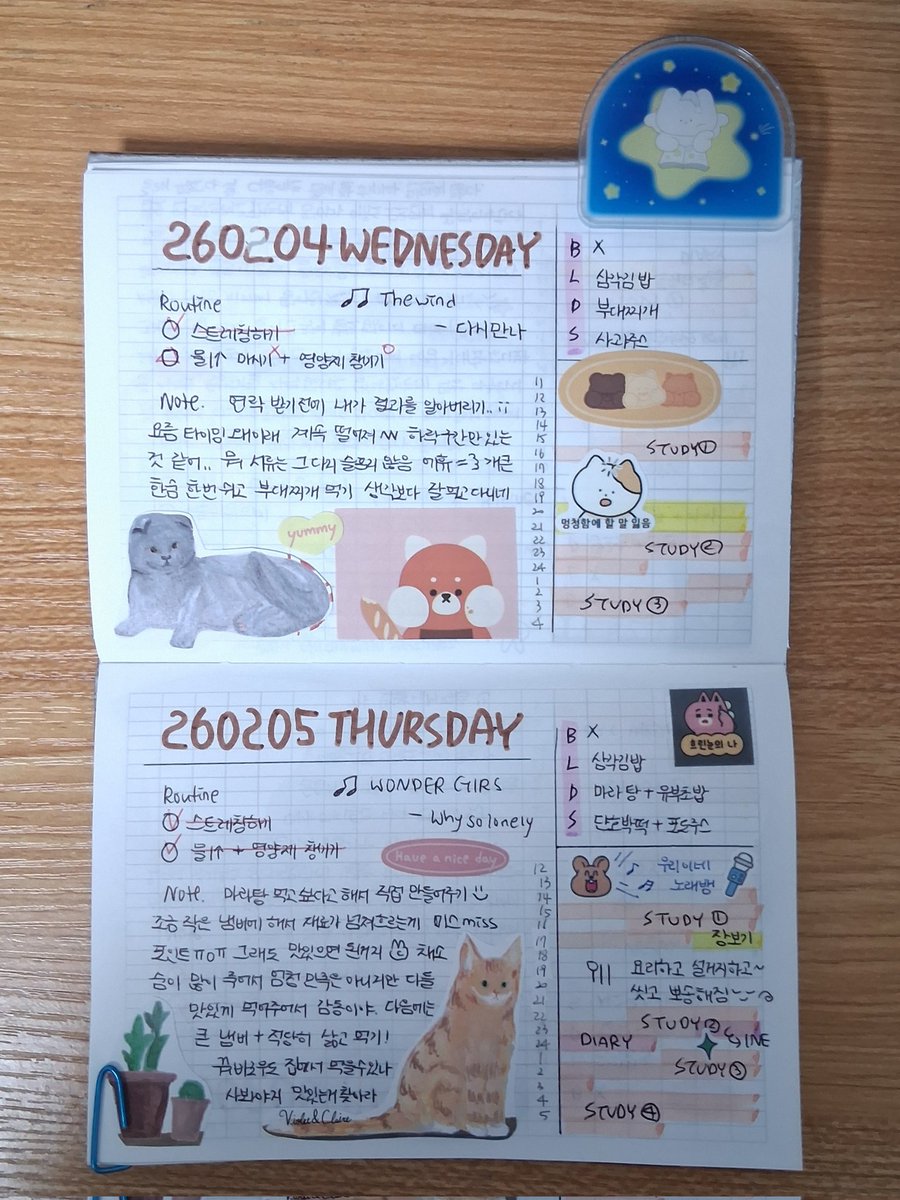 260204 WEDNESDAY
Routine
♫ The wind
스트레칭하기
- 다시만나
물1↑ 마시기 + 영양제 챙기기
Note. 연락 받기전에 내가 결과를 알아버리기..
요즘 타이밍 왜이래 계속 떨어져 하락구간만 있는
것 같어.. 뭐 서류는 그다지 슬프지 않음 어휴 =3 개큰
한숨 한번 쉬고 부대찌개 먹기 생각보다 잘먹고다니네
yummy
B X
L 삼각김밥
D 부대찌개
S 사과주스
11
12
13
14
15
16
17
18
19
20
21
22
23
24
1
2
3
4
STUDY①
멍청함에 할 말 잃음
STUDY②
STUDY③
260205 THURSDAY
Routine
♫ WONDER GIRS
스트레칭하기
- Why so lonely
물1↑ + 영양제 챙기기
Have a nice day
Note. 마라탕 먹고싶다고 해서 직접 만들어주기
조금 작은 냄비에 해서 재료가 넘쳐흐르는게 미스miss
포인트ㅠㅠ 그래도 맛있으면 된거지 채소
숨이 많이 죽어서 엄청 만족은 아니지만 다들
맛있게 먹어주어서 감동이야. 다음에는
큰 냄비 + 적당히 삶고 먹기!
꿔바로우도 집에서 먹을수있나
사봐야지 맛있는데 찾아라
Violet&Claire
B X
L 삼각김밥
D 마라탕 + 유부초밥
S 단호박떡 + 포도주스
흐린눈의 나
우리이네
노래방
12
13
14
15
16
17
18
19
20
21
22
23
24
1
2
3
4
5
STUDY①
장보기
요리하고 설거지하고~
씻고 뽀송해짐
STUDY②
DIARY
LINE
STUDY③
STUDY④